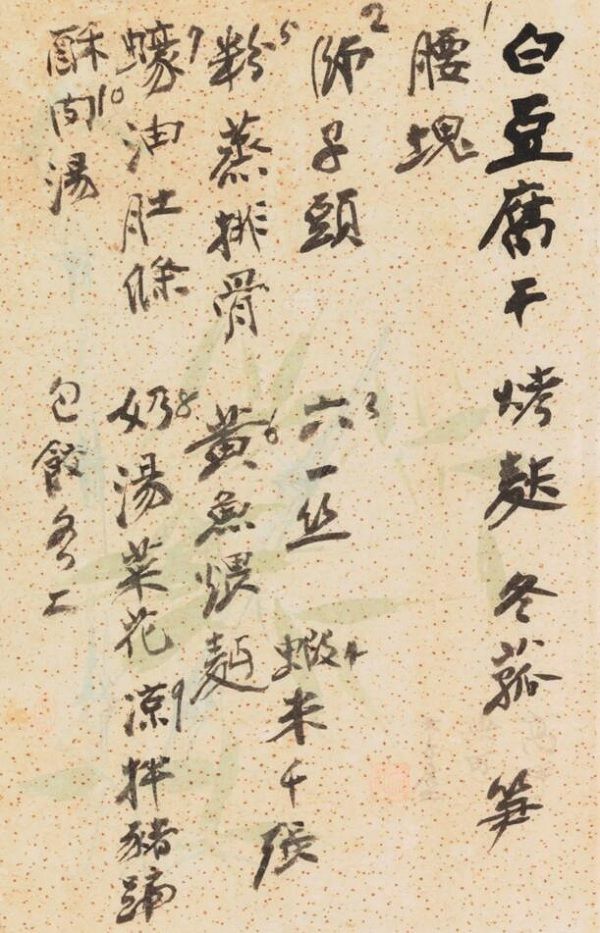 白豆腐干 烤麩 冬菰 笋
腰塊 1
師子頭 2 六一丝 3 蝦米千張 4
粉蒸排骨 5 黄魚煨麵 6
蠔油肚條 7 奶湯菜花 8 凉拌豬蹄 9
酥肉湯 10 包餃各